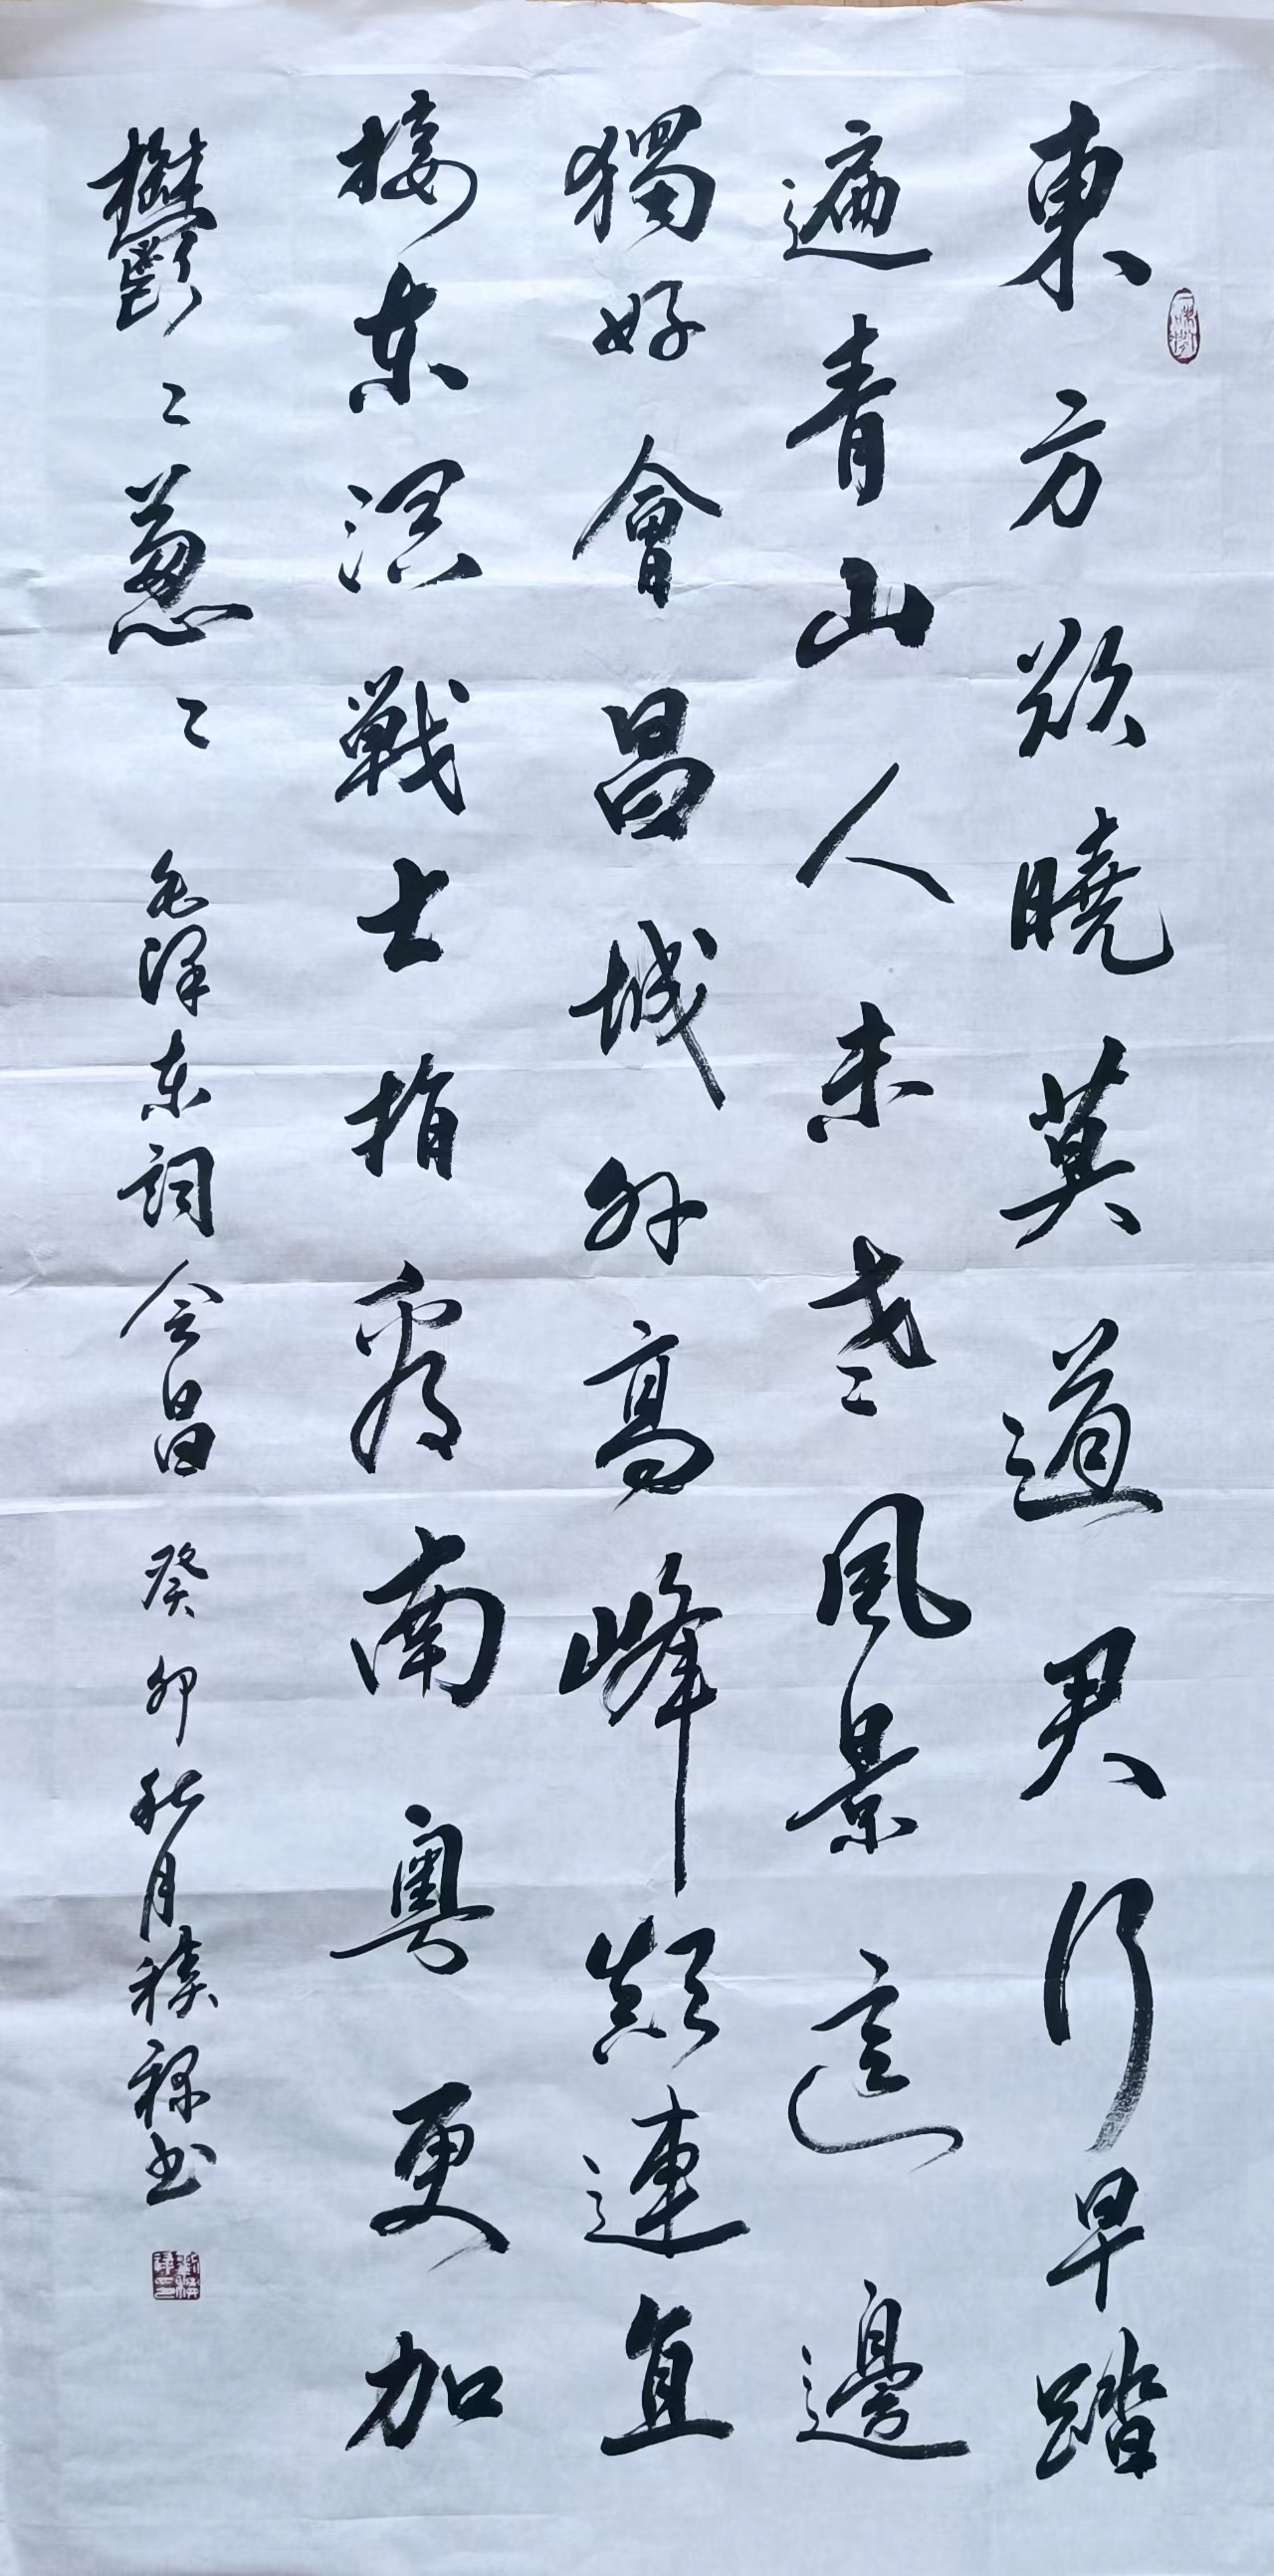 東方欲曉莫道君行早踏
遍青山人未老〻風景這邊
獨好會昌城外高峰顛連直
接东溟戰士指看南粵更加
鬱〻葱〻
毛泽东詞会昌 癸卯秋月 禄书